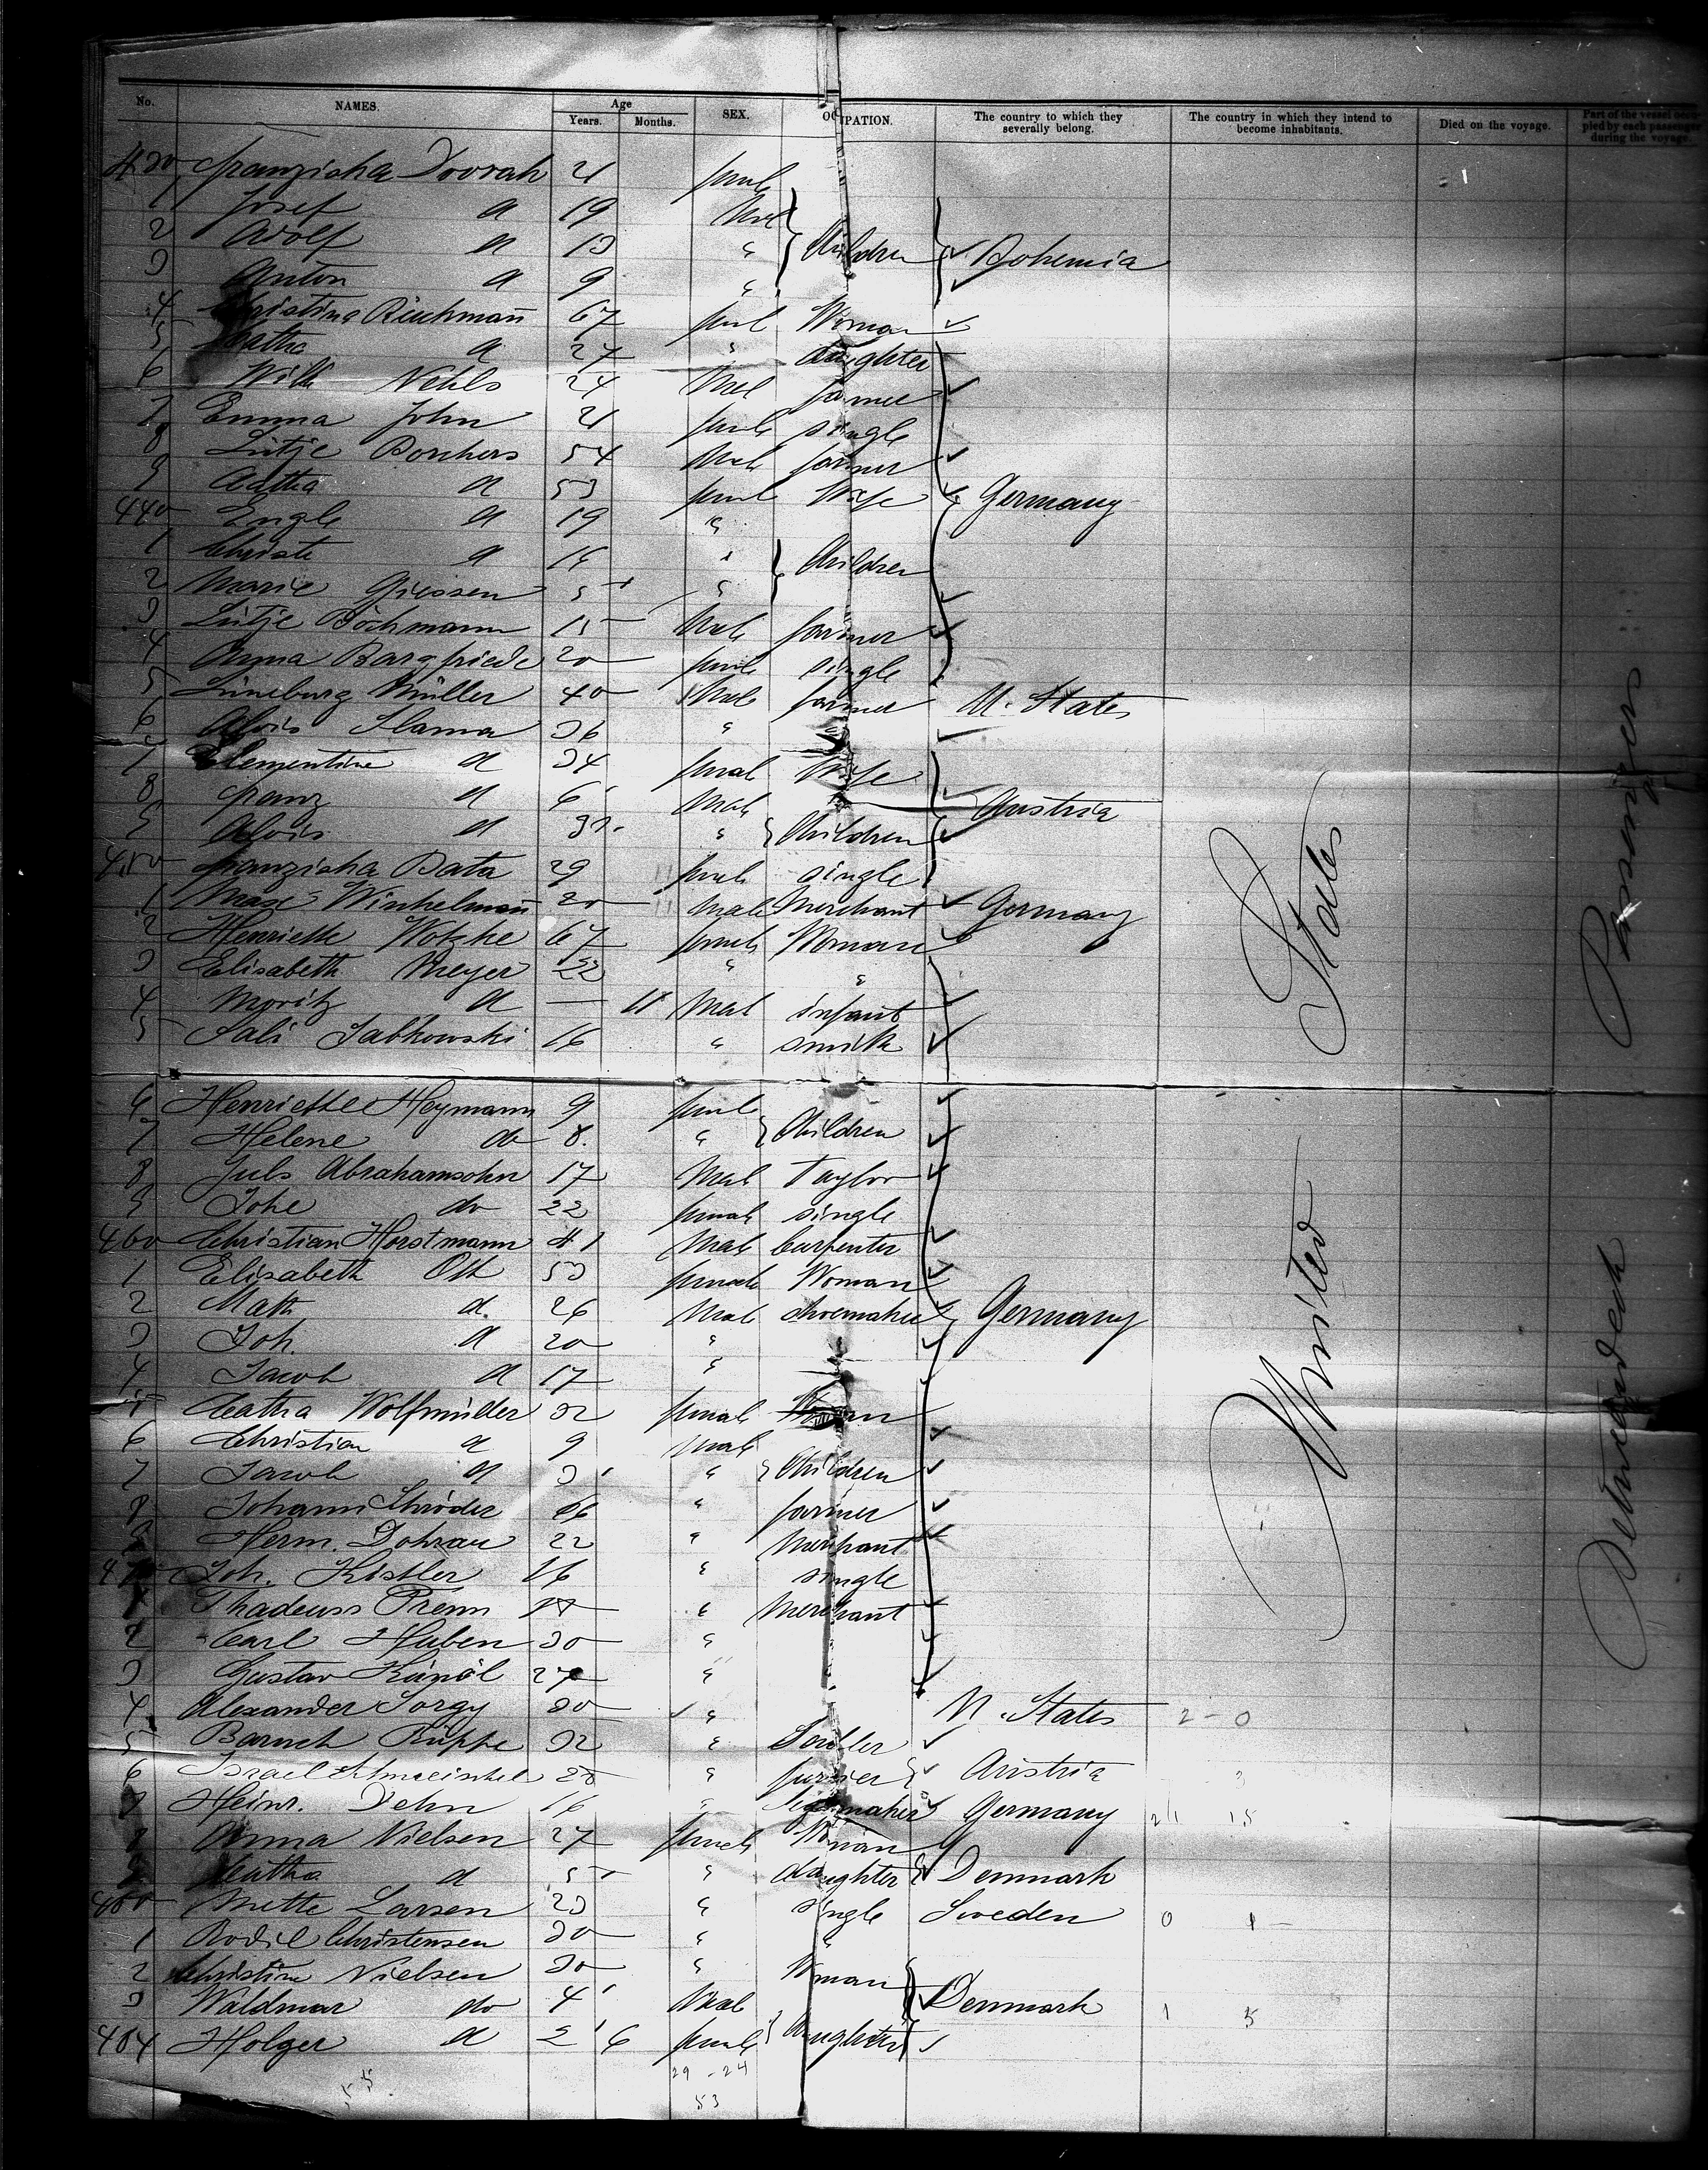 No. NAMES. Age Years. Months. SEX. OCCUPATION. The country to which they severally belong. The country in which they intend to become inhabitants. Died on the voyage. Part of the vessel occupied by each passenger during the voyage.
430 Franziska Dvorak 21 femle
1 Josef d 19 Male
2 Adolf d 13 " Children Bohemia
3 Anton d 9 "
4 Christina Rieckmann 67 feml Woman
5 d 27 " daughter
6 Wilh Nehls 24 Mal farmer
7 Emma John 21 femle single
8 Lütje Borchers 54 Male farmer
9 d 53 femle Wife Germany
440 Engle d 19 "
1 Christe d 14 " Children
2 Marie Giessen 5 "
3 Lütje Böchmann 15 Male farmer
4 Anna Bargfriede 20 femle single
5 Lüneburg Müller 40 Male farmer U. States
6 Alois Slama 36 "
7 Clementine d 34 femal Wife
8 Franz d 6 Male Austria
9 Alois d " Children
450 Franziska Bata 29 femle single
1 Max Winkelmann 20 Male Merchant Germany
2 Henriette Wotzke 67 femle Woman
3 Elisabeth Meyer 22 " "
4 Moritz d — 11 Mal infant
5 Sali Jabkowski 16 " smith
6 Henriette Heymann 9 femle
7 Helene do 8 " Children
8 Juls Abrahamsohn 17 Mal Taylor
9 Johe do 22 femal single
460 Christian Horstmann 41 Male Carpenter
1 Elisabeth Ott 53 female Woman
2 Math d. 26 Male shoemaker Germany
3 Joh. d 20 "
4 Jacob d 17 "
5 Cathra Wolfmüller 32 femal Woman
6 Christian d 9 Male
7 Jacob d 3 " Children
8 Johann Schröder 66 " farmer
9 Herm. Dohrau 22 " Merchant
470 Joh. Kistler 16 " single
1 Thadeuss Prenn " Merchant
2 Carl Huben 30 "
3 Gustav 27 "
4 Alexander Sorgy 30 " U. States 2 - 0
5 Baruch Rüppe 32 " Sadler
6 Israel 28 " furrier Austria
7 Heinr. Dehn 16 " Germany 21 15
8 Anna Nielsen 27 female Woman
9 d 5 " daughter Denmark
480 Mette Larsen 23 " single Sweden 0 1 -
1 Bodil Christensen 30 " "
2 Christine Nielsen 30 " Woman
3 Waldmar do 4 Mal Denmark 1 5
484 Holger d 2 6 femle daughter
29 - 24
53
55
United States
Betweendeck Passengers